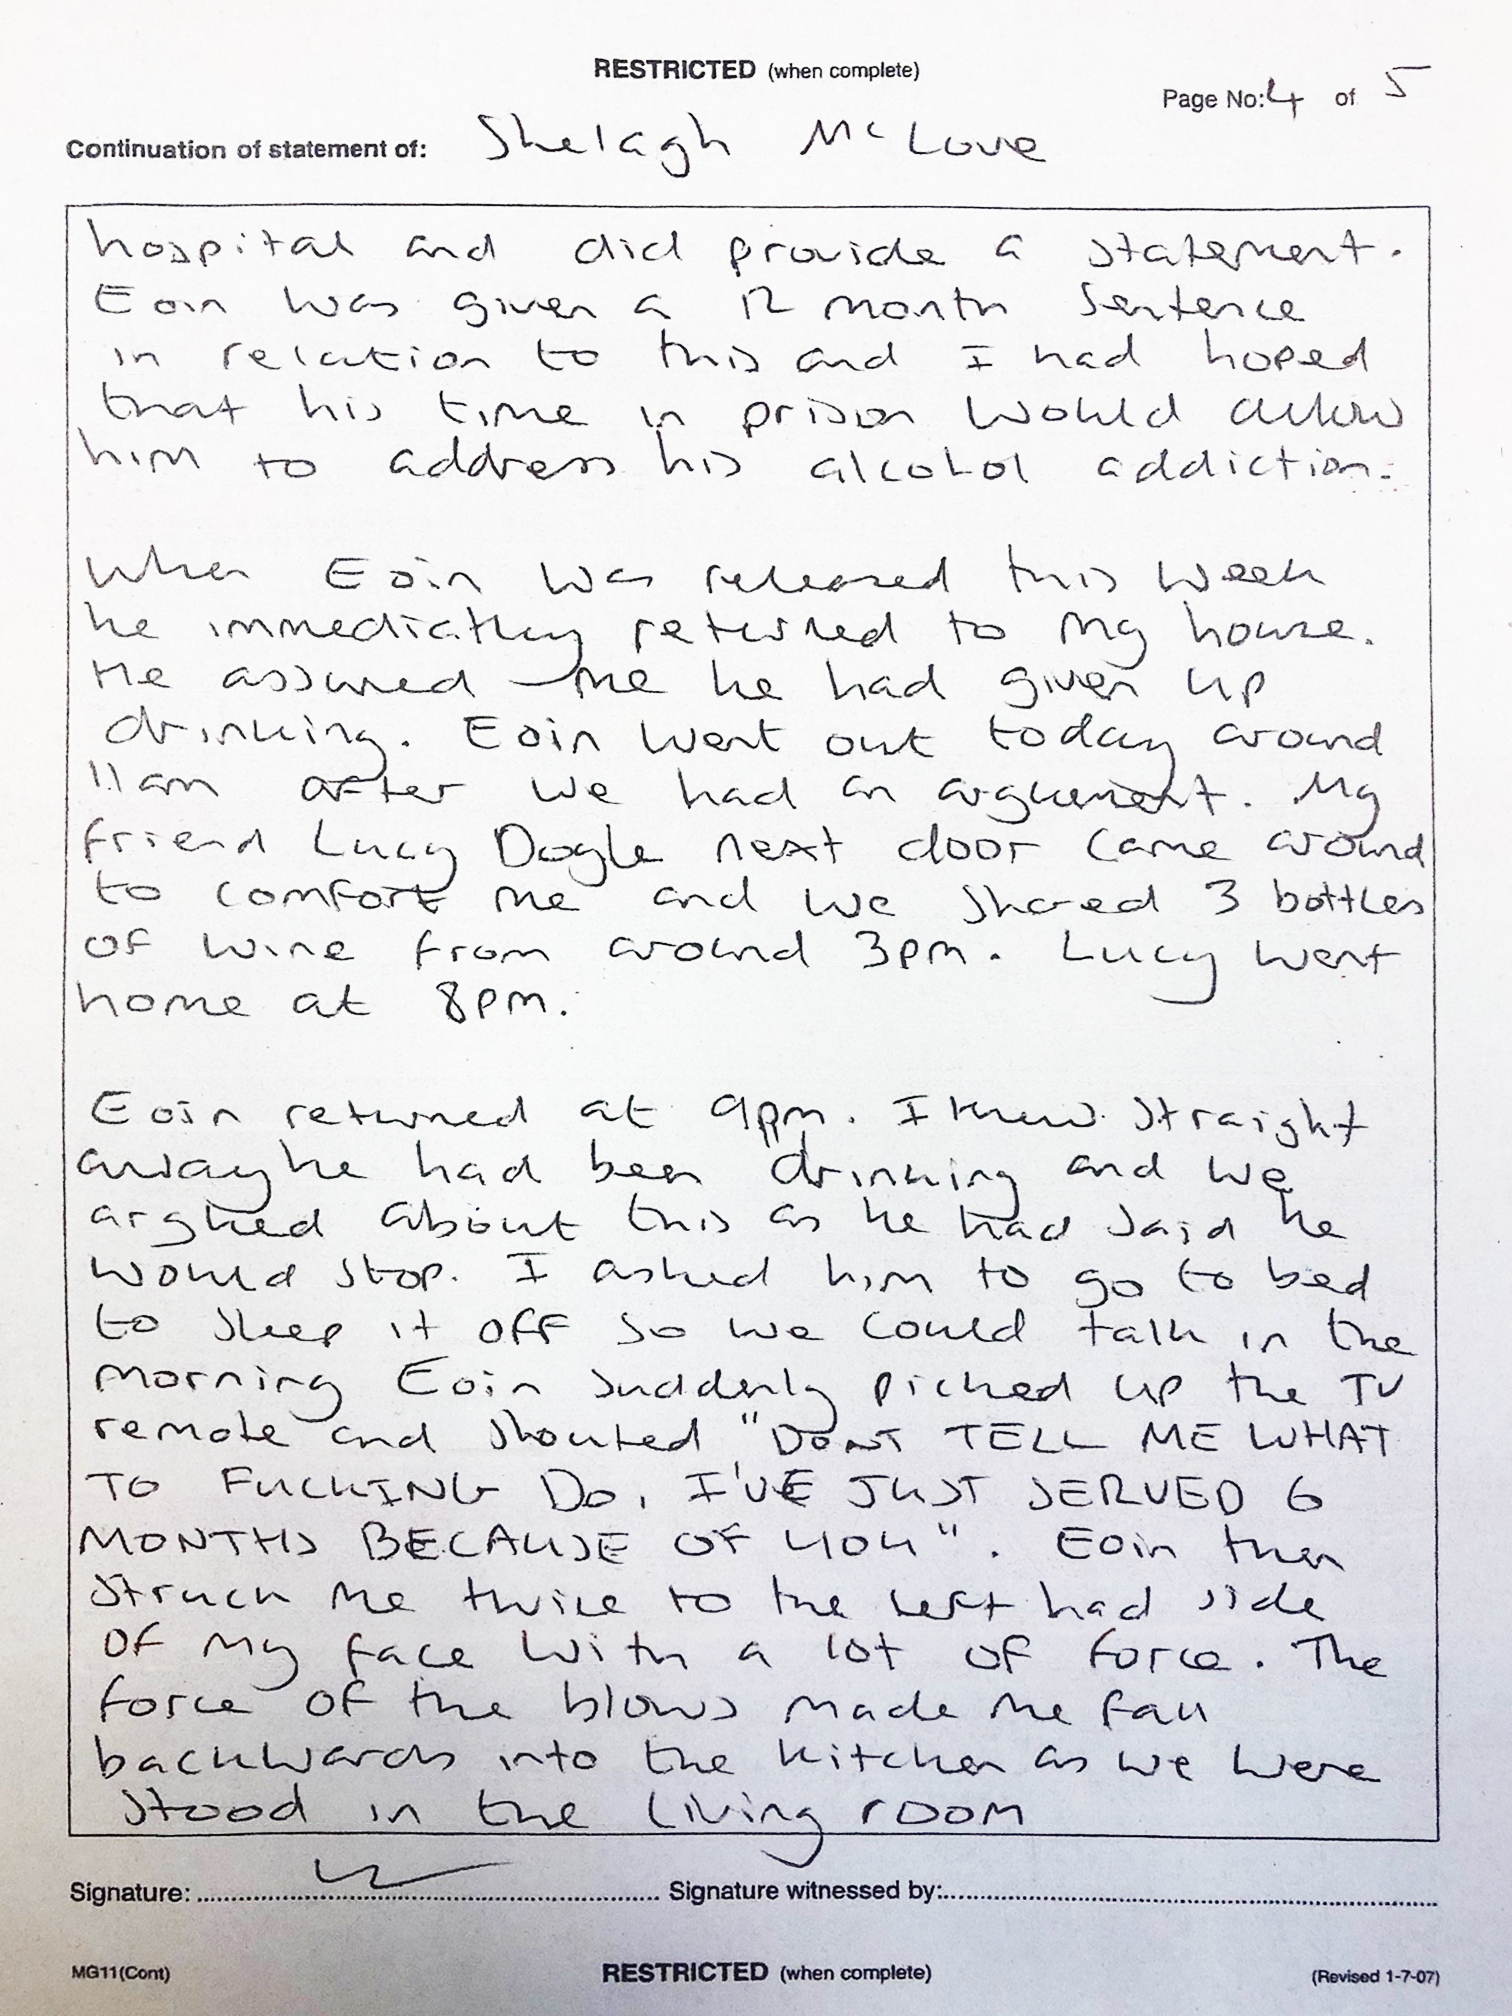 RESTRICTED (when complete)
Page No: 4 of 5
Continuation of statement of: Shelagh McLove
hospital and did provide a statement.
Eoin was given a 12 month sentence
in relation to this and I had hoped
that his time in prison would allow
him to address his alcohol addiction.
When Eoin was released this week
he immediatley returned to my house.
He assured me he had given up
drinking. Eoin went out today around
11am after we had an arguement. My
friend Lucy Dogle next door came around
to comfort me and we shared 3 bottles
of wine from around 3pm. Lucy went
home at 8pm.
Eoin returned at 9pm. I knew straight
away he had been drinking and we
argued about this as he had said he
would stop. I asked him to go to bed
to sleep it off so we could talk in the
morning Eoin suddenly picked up the TV
remote and shouted "DONT TELL ME WHAT
TO FUCKING DO, I'VE JUST SERVED 6
MONTHS BECAUSE OF YOU". Eoin then
struck me twice to the left had side
of my face with a lot of force. The
force of the blows made me fall
backwards into the kitchen as we were
stood in the living room
Signature: Signature witnessed by:
MG11(Cont)
RESTRICTED (when complete)
(Revised 1-7-07)